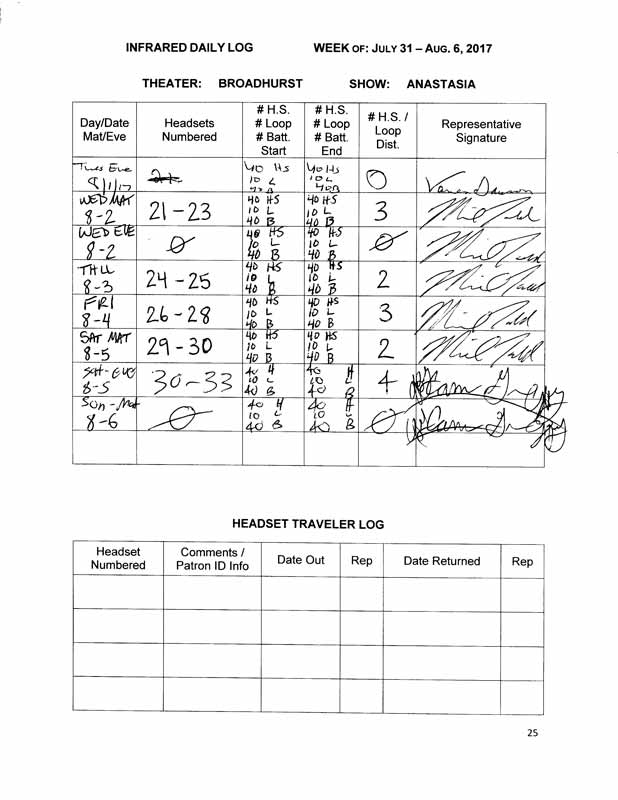 INFRARED DAILY LOG WEEK OF: JULY 31 – AUG. 6, 2017
THEATER: BROADHURST SHOW: ANASTASIA
Day/Date Mat/Eve
Headsets Numbered
# H.S. # Loop # Batt. Start
# H.S. # Loop # Batt. End
# H.S. / Loop Dist.
Representative Signature
Tues Eve 8/1/17
40 HS 10 L 40B
40 HS 10 L 40B
0
WED MAT 8-2
21-23
40 HS 10 L 40 B
40 HS 10 L 40 B
3
WED EVE 8-2
Ø
40 HS 10 L 40 B
40 HS 10 L 40 B
Ø
THU 8-3
24-25
40 HS 10 L 40 B
40 HS 10 L 40 B
2
FRI 8-4
26-28
40 HS 10 L 40 B
40 HS 10 L 40 B
3
SAT MAT 8-5
29-30
40 HS 10 L 40 B
40 HS 10 L 40 B
2
Sat-Eve 8-5
30-33
40 H 10 L 40 B
40 H 10 L 40 B
4
Sun-Mat 8-6
Ø
40 H 10 L 40 B
40 H 10 L 40 B
Ø
HEADSET TRAVELER LOG
Headset Numbered
Comments / Patron ID Info
Date Out
Rep
Date Returned
Rep
25